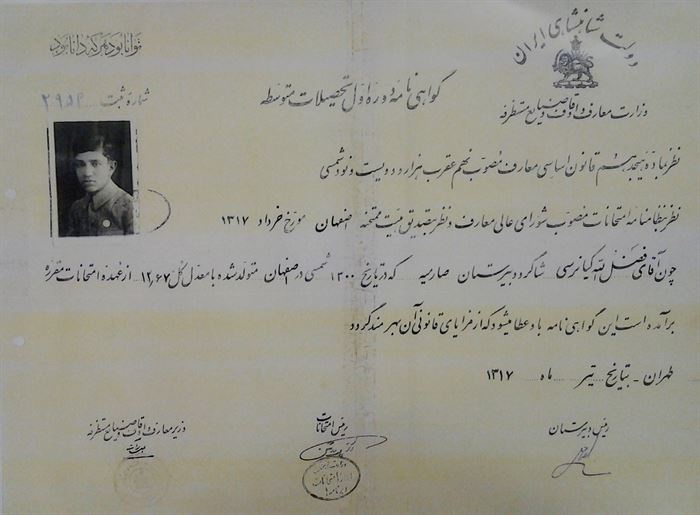 دولت شاهنشاهی ایران
توانا بود هر که دانا بود
وزارت معارف و اوقاف و صنایع مستظرفه
گواهی نامه دوره اول تحصیلات متوسطه
شماره ثبت ۲۹۵۴
نظر بماده هیجدهم قانون اساسی معارف مصوب نهم عقرب هزار و دویست و نود شمسی
نظر بنظامنامه امتحانات مصوب شورای عالی معارف و نظر بتصدیق هیئت ممتحنه اصفهان مورخ خرداد ۱۳۱۷
چون آقای فضل الله کیانرسی شاگرد دبیرستان صارمیه که در تاریخ ۱۳۰۰ شمسی در اصفهان متولد شده با معدل کل ۱۲٫۶۷ از عهده امتحانات مقرره
برآمده است این گواهی نامه باو عطا میشود که از مزایای قانونی آن بهره مند گردد
طهران - بتاریخ تیر ماه ۱۳۱۷
رئیس دبیرستان
رئیس امتحانات
وزیر معارف و اوقاف و صنایع مستظرفه